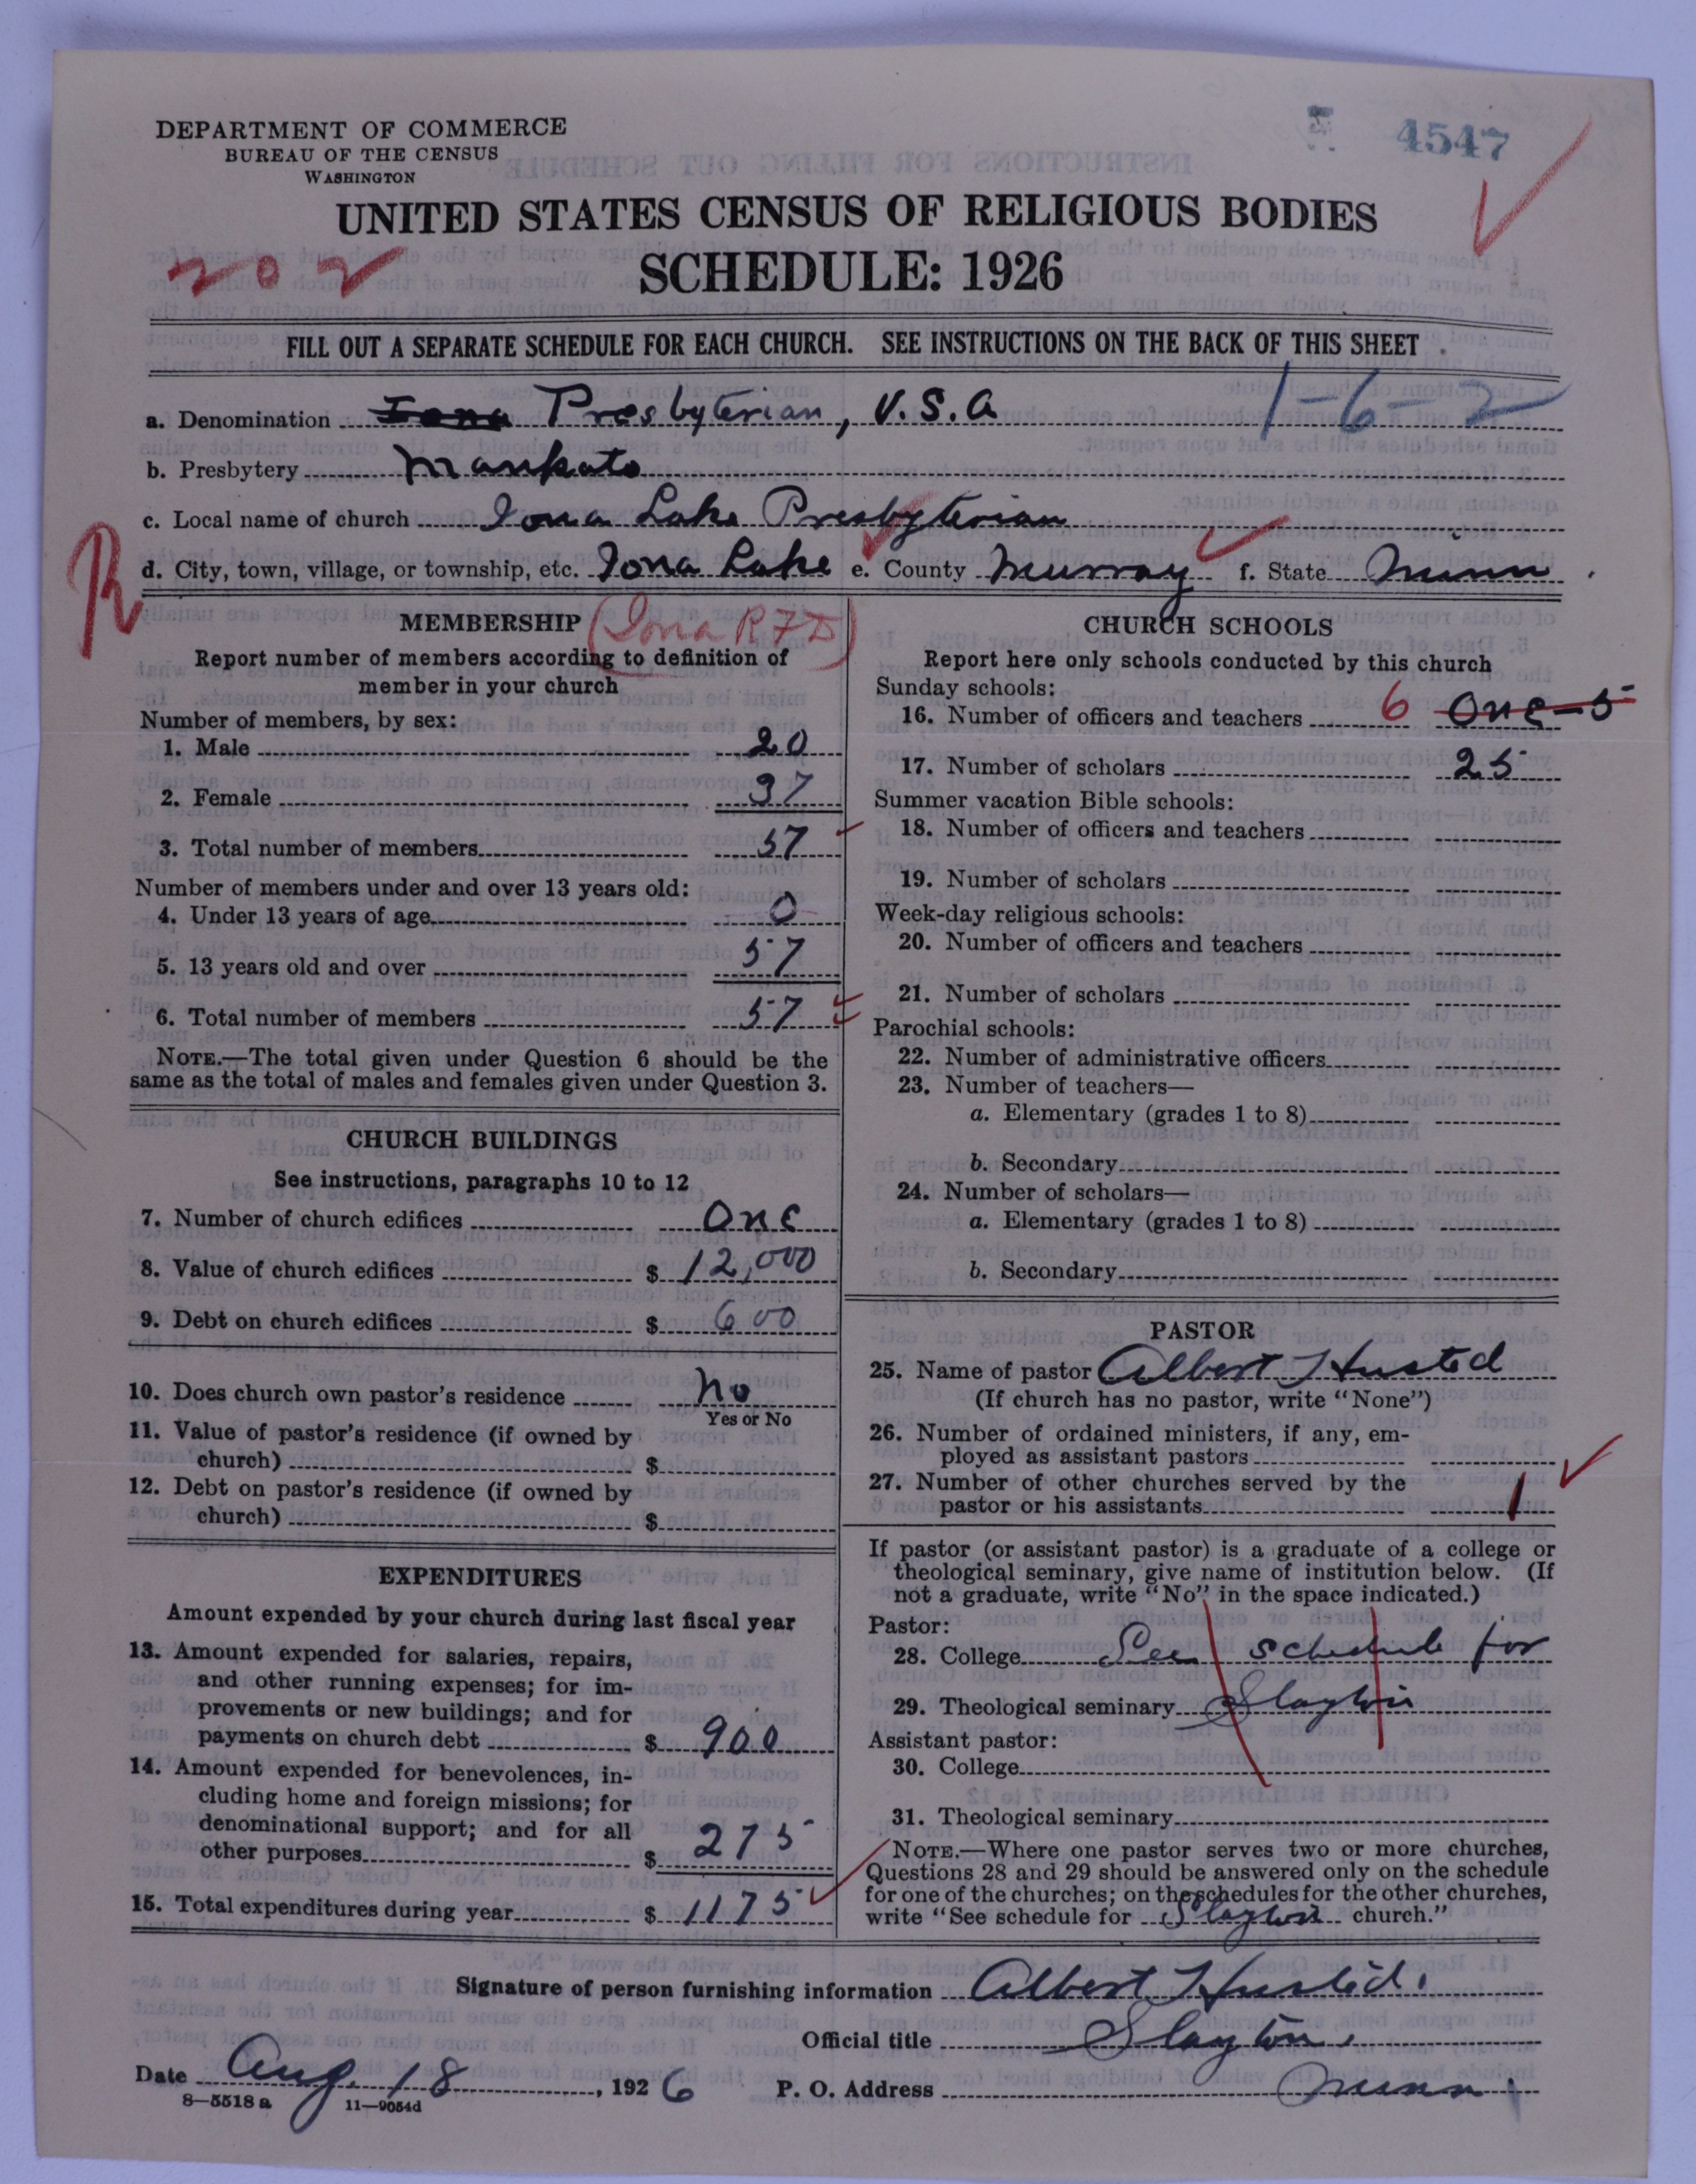 4547
DEPARTMENT OF COMMERCE
BUREAU OF THE CENSUS
WASHINGTON
UNITED STATES CENSUS OF RELIGIOUS BODIES
202
SCHEDULE: 1926
FILL OUT A SEPARATE SCHEDULE FOR EACH CHURCH. SEE INSTRUCTIONS ON THE BACK OF THIS SHEET
1-6-2
a. Denomination Iona Presbyterian, U.S.A
b. Presbytery Mankato
c. Local name of church Iona Lake Presbyterian
R
d. City, town, village, or township, etc. Iona Lake e. County Murray f. State Minn.
(Iona RFD)
MEMBERSHIP
Report number of members according to definition of
member in your church
Number of members, by sex:
1. Male 20
2. Female 37
3. Total number of members 57
Number of members under and over 13 years old:
4. Under 13 years of age 0
5. 13 years old and over 57
6. Total number of members 57
NOTE.—The total given under Question 6 should be the
same as the total of males and females given under Question 3.
CHURCH BUILDINGS
See instructions, paragraphs 10 to 12
7. Number of church edifices One
8. Value of church edifices $ 12,000
9. Debt on church edifices $ 600
10. Does church own pastor's residence No
Yes or No
11. Value of pastor's residence (if owned by
church) $
12. Debt on pastor's residence (if owned by
church) $
EXPENDITURES
Amount expended by your church during last fiscal year
13. Amount expended for salaries, repairs,
and other running expenses; for im-
provements or new buildings; and for
payments on church debt $ 900
14. Amount expended for benevolences, in-
cluding home and foreign missions; for
denominational support; and for all
other purposes $ 275
15. Total expenditures during year $ 1175
CHURCH SCHOOLS
Report here only schools conducted by this church
Sunday schools:
16. Number of officers and teachers 6 One-5
17. Number of scholars 25
Summer vacation Bible schools:
18. Number of officers and teachers
19. Number of scholars
Week-day religious schools:
20. Number of officers and teachers
21. Number of scholars
Parochial schools:
22. Number of administrative officers
23. Number of teachers—
a. Elementary (grades 1 to 8)
b. Secondary
24. Number of scholars—
a. Elementary (grades 1 to 8)
b. Secondary
PASTOR
25. Name of pastor Albert Husted
(If church has no pastor, write "None")
26. Number of ordained ministers, if any, em-
ployed as assistant pastors
27. Number of other churches served by the
pastor or his assistants 1
If pastor (or assistant pastor) is a graduate of a college or
theological seminary, give name of institution below. (If
not a graduate, write "No" in the space indicated.)
Pastor:
28. College See schedule for
29. Theological seminary Slayton
Assistant pastor:
30. College
31. Theological seminary
NOTE.—Where one pastor serves two or more churches,
Questions 28 and 29 should be answered only on the schedule
for one of the churches; on the schedules for the other churches,
write "See schedule for Slayton church."
Signature of person furnishing information Albert Husted.
Official title Slayton,
Date Aug. 18, 1926 P. O. Address Minn.
8—5518 a 11—9054d